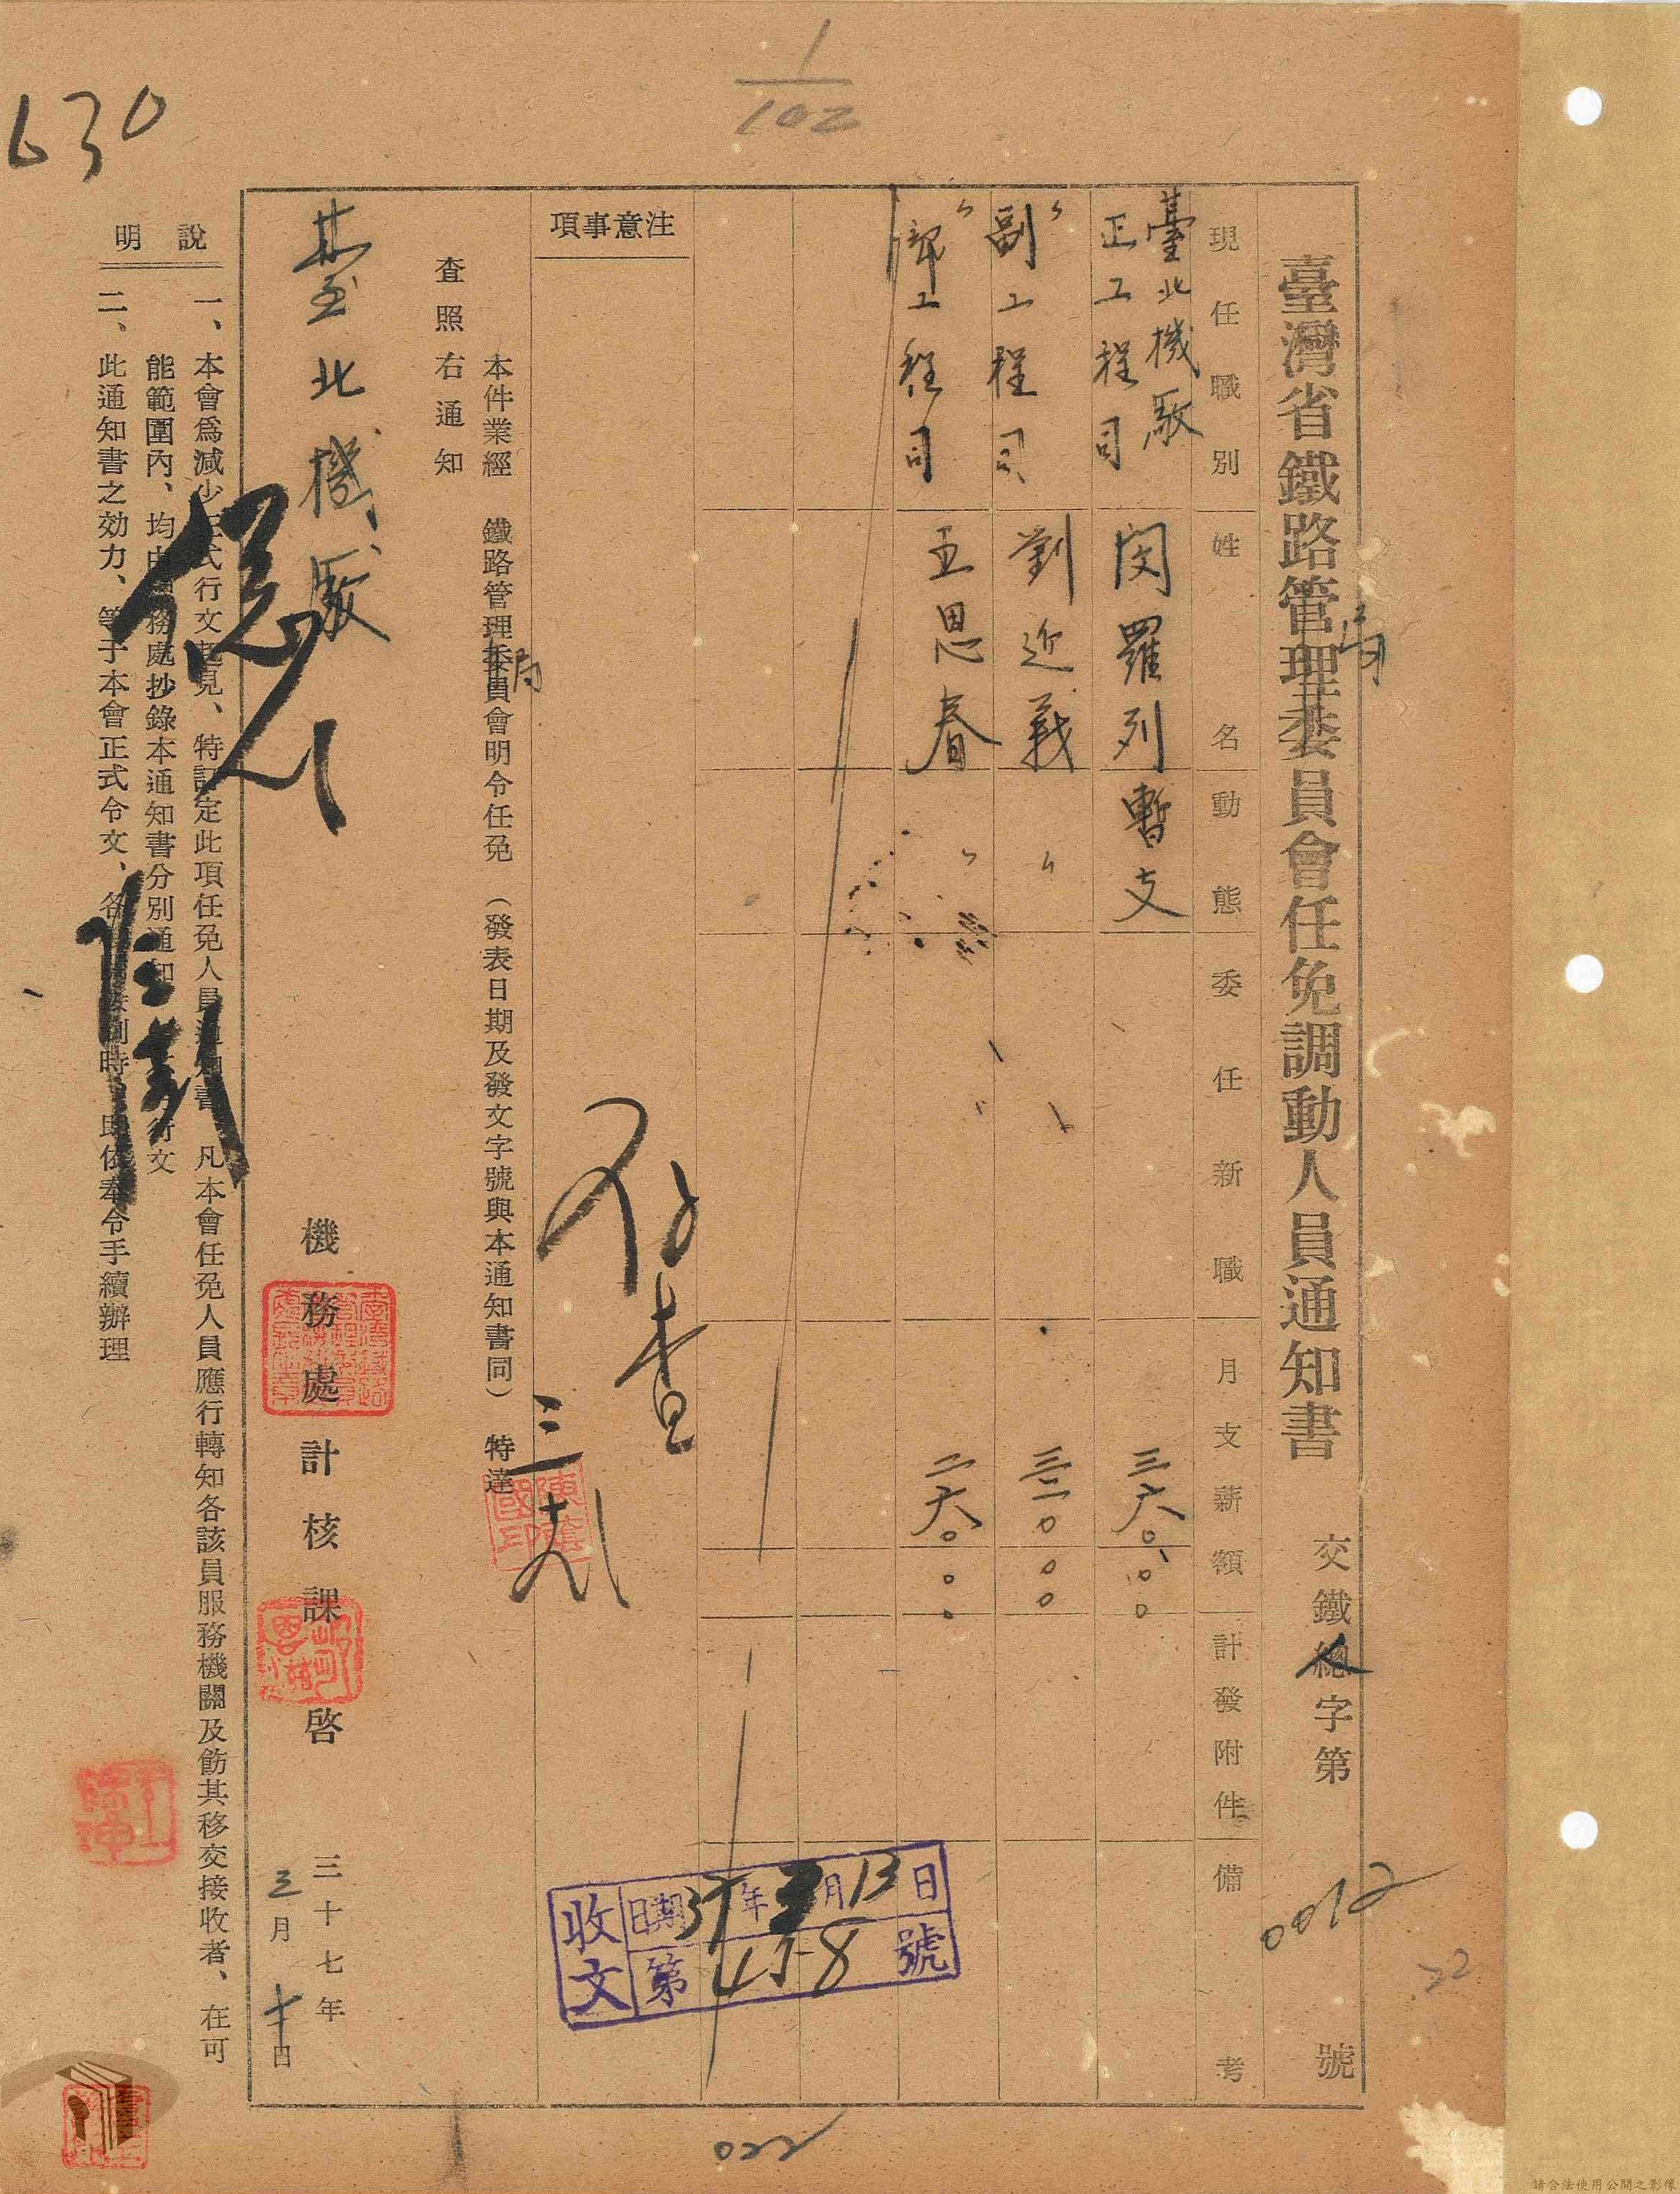 1/102
630
臺灣省鐵路管理委員會任免調動人員通知書
局
交鐵總字第 0012 號
人
22
現任職別 姓名 動態 委任新職 月支薪額 計發附件 備考
臺北機廠
正工程司 閔羅列 暫支 三六〇.〇〇
〃副工程司 劉近義 〃 三二〇〇〇
〃幫工程司 王思春 〃 二六〇.〇〇
注意事項
存查
三
本件業經 鐵路管理委員會明令任免 (發表日期及發文字號與本通知書同) 特達
局
查照右通知
臺北機廠
機務處計核課啓
三十七年
三月十日
說明
一、本會爲減少正式行文起見、特訂定此項任免人員通知書 凡本會任免人員應行轉知各該員服務機關及飭其移交接收者、在可
能範圍內、均由務處抄錄本通知書分別通知行文
二、此通知書之効力、等于本會正式令文、各時即依奉令手續辦理
收文
日期 37年3月13日
第458號
陳蔭國印
022
請合法使用公開之影像